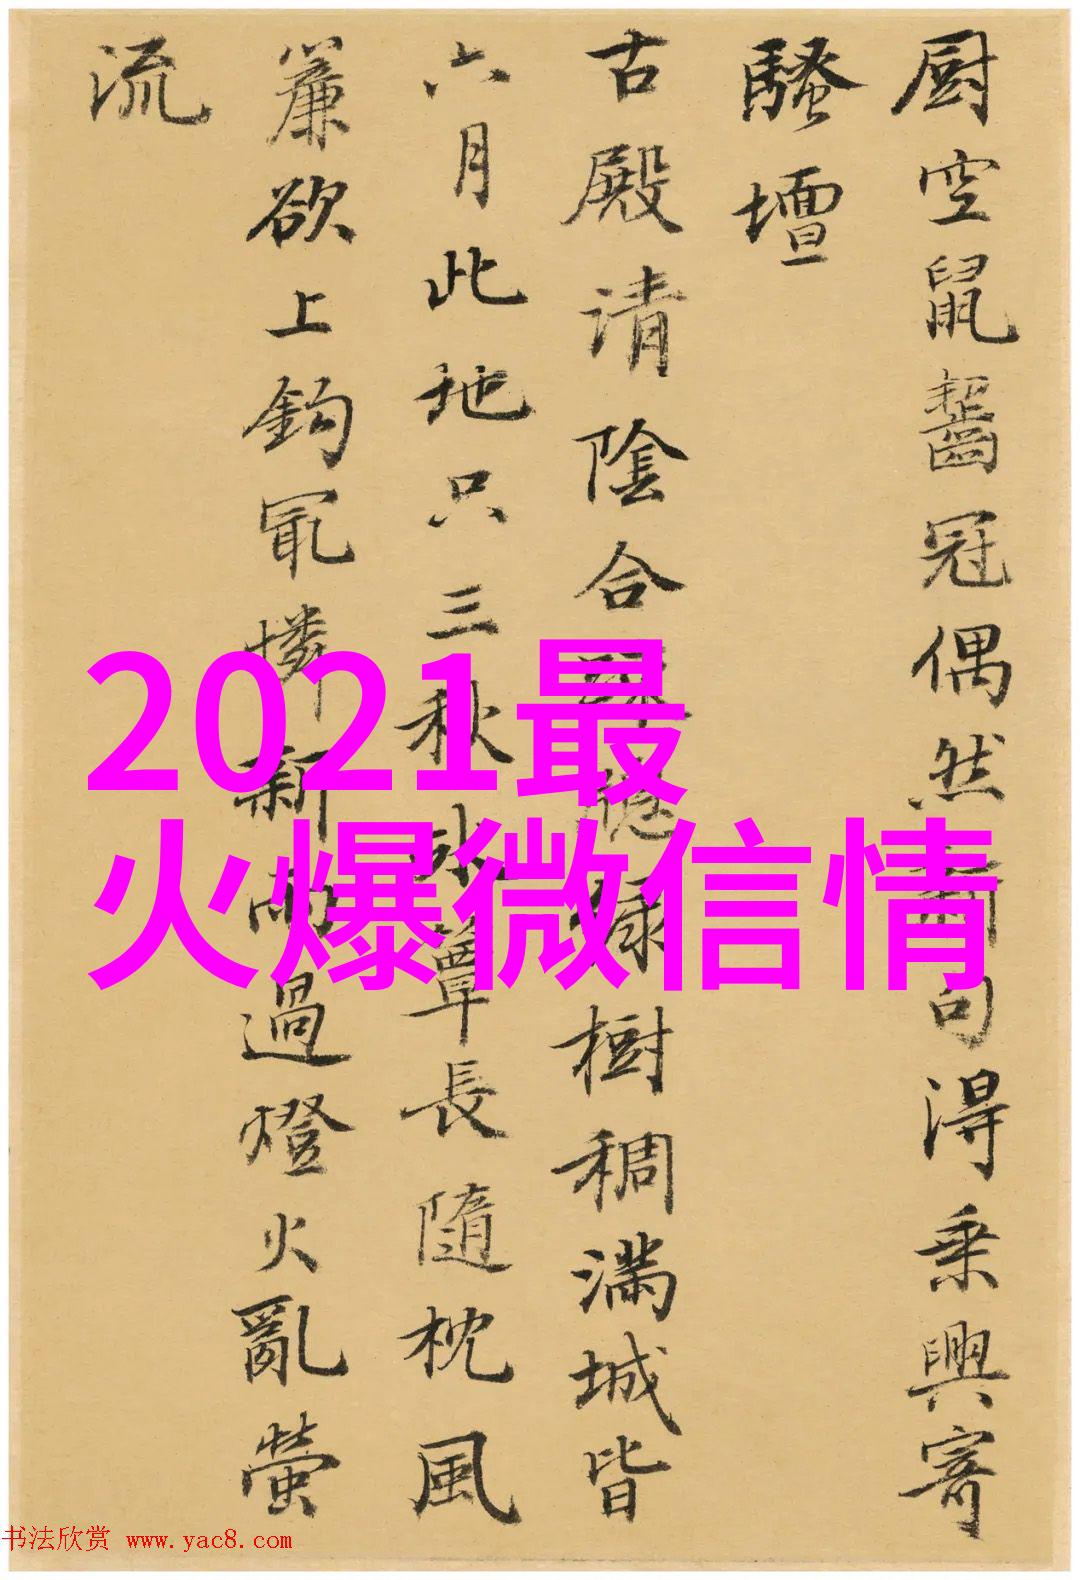 厨空鼠齧冠偶然有句得乘興寄
騷壇
古殿请陰合
緑樹稠滿城皆
六月此地只三秋水簟長隨枕風
簾欲上鈎冣憐新雨過燈火亂螢
流
2021最
火爆微信情
书法欣赏 www.yac8.com